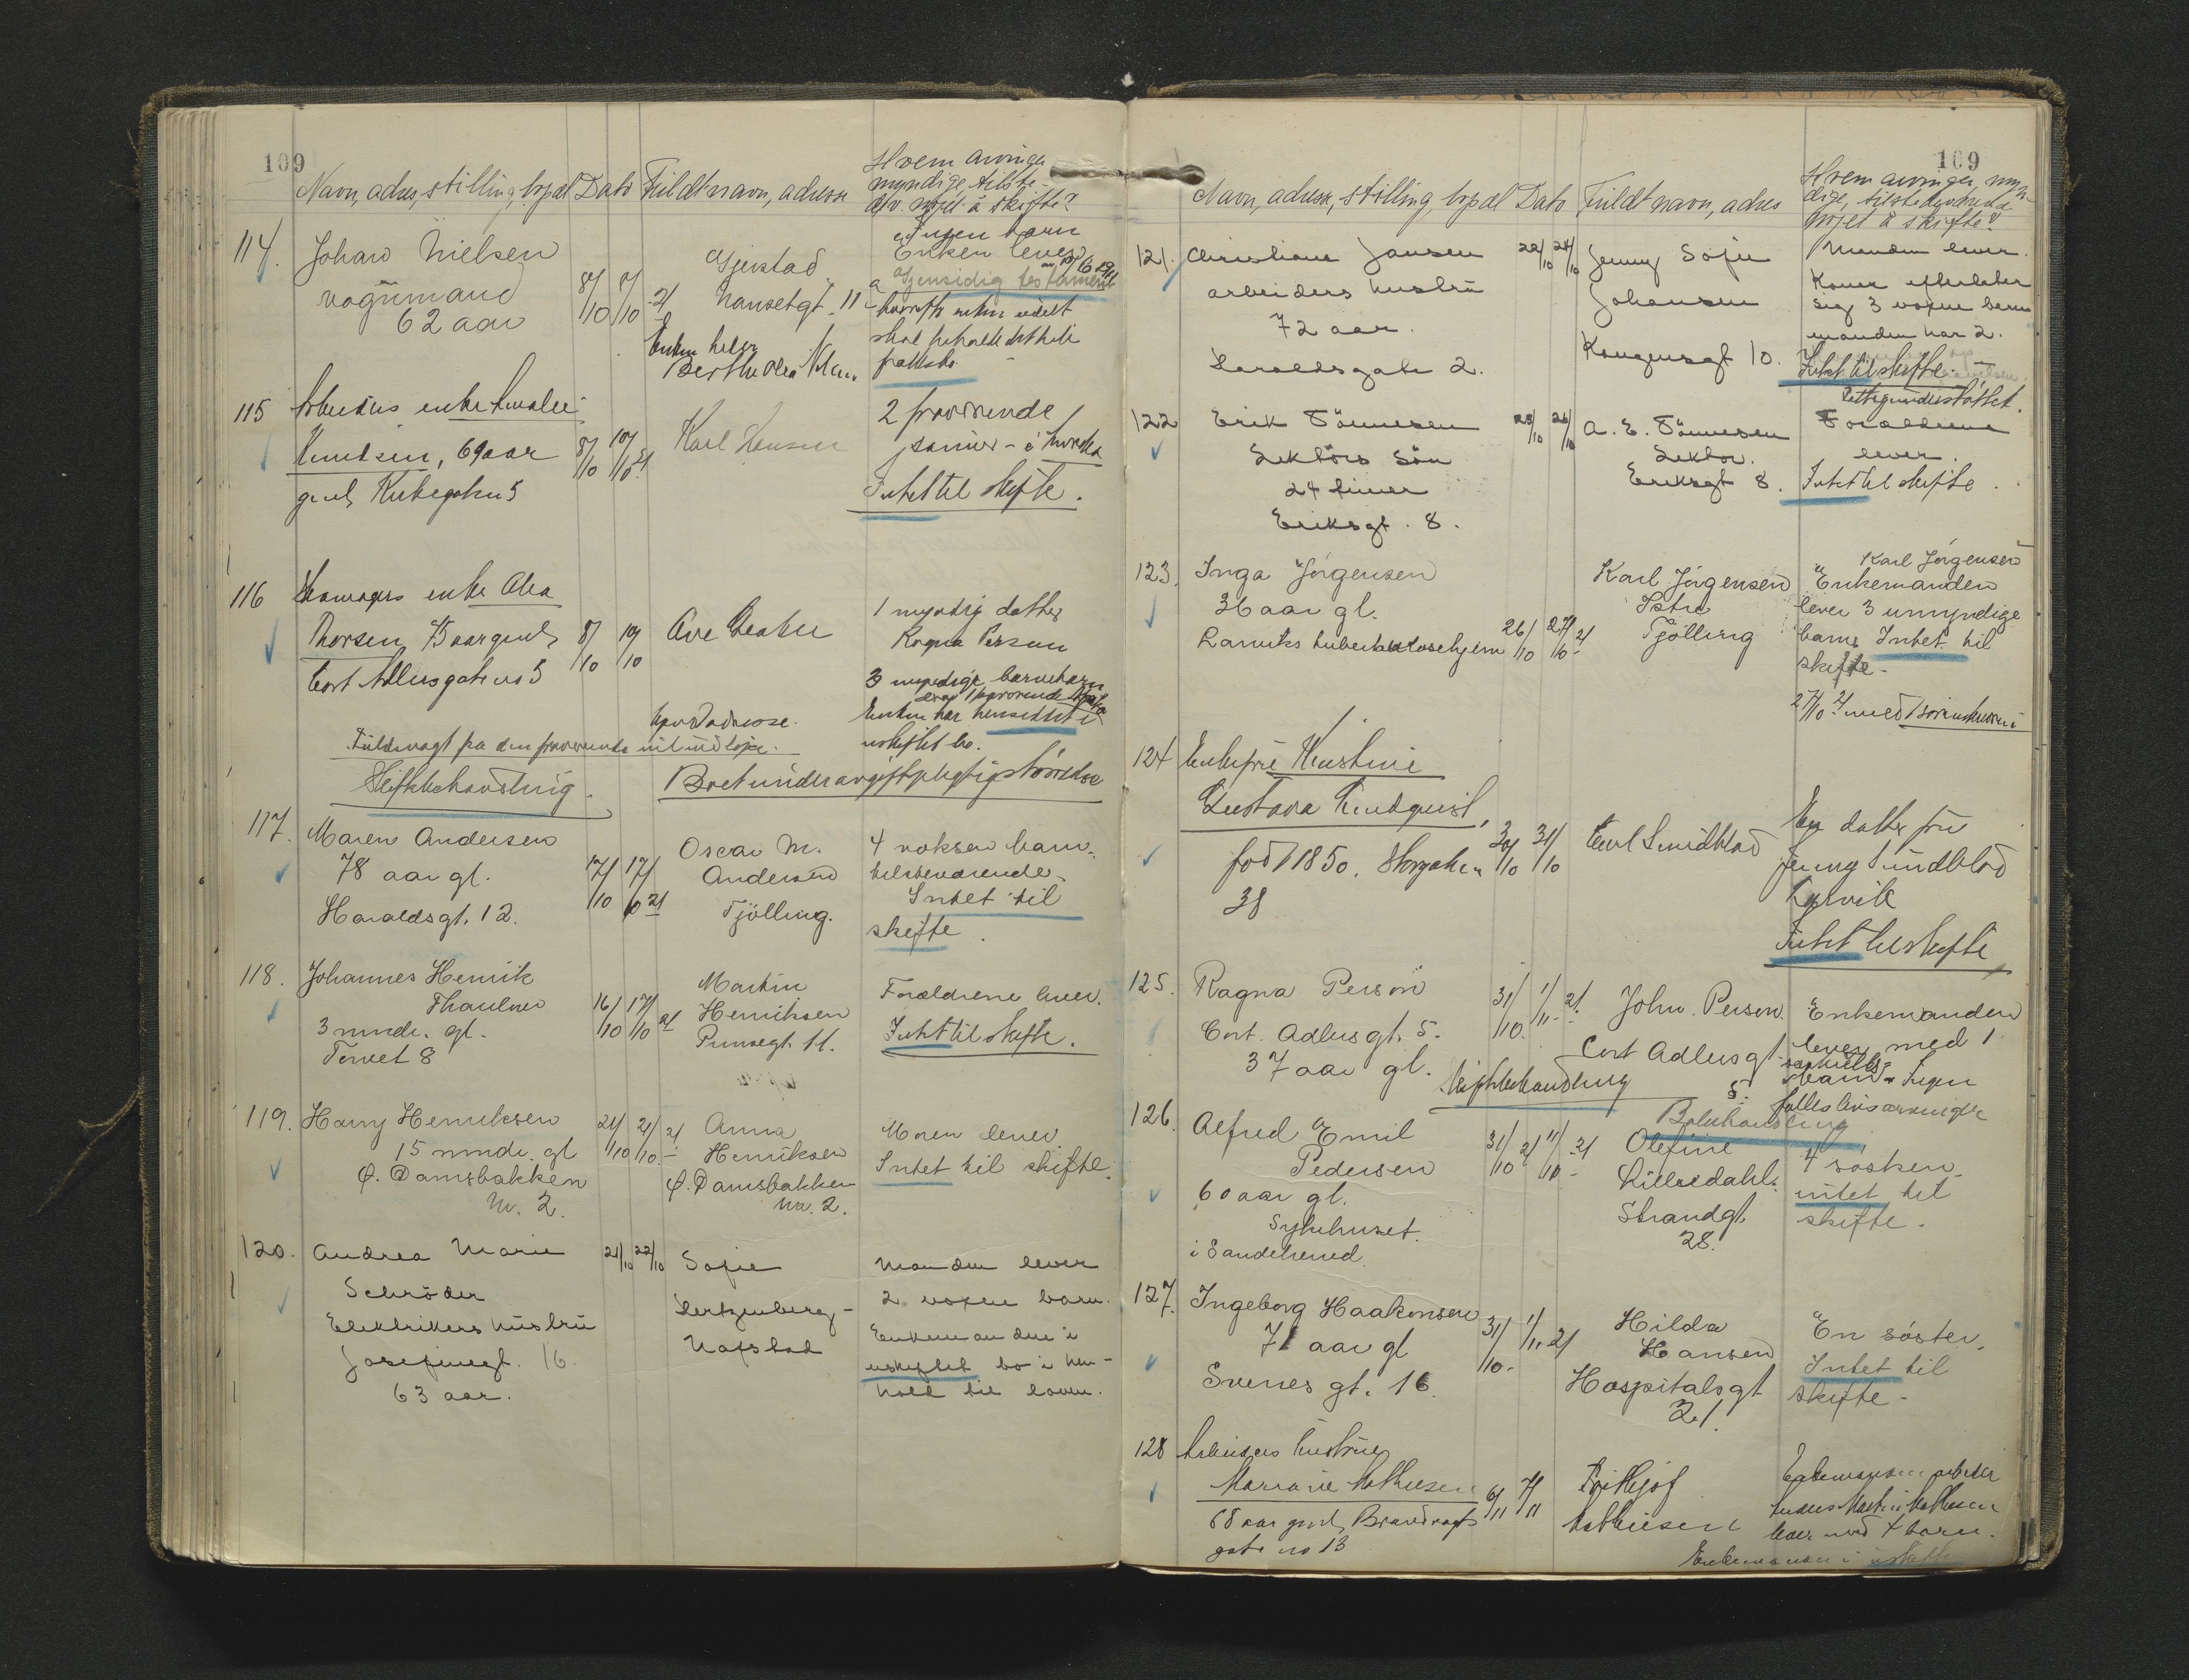 109
Navn, adres, stilling, bopæl Dato Fuldt navn, adresse
Hvem arvinger
myndige, tilste-
noget å skifte?
114. Johan Nielsen
vognmand
62 aar
8/10 9/10 21
Gjerstad
Nansetgt. 11
Enken heter
Berthe Olea
Ingen barn
Enken lever
Gjensidig testament
hvorefter enken
skal beholde det hele
115 Arbeiders enke Amalie
Knudsen, 69 aar
gml, Kirkegaten 5
8/10 10/10 21
Karl Hansen
2 fraværende
sønner - i Amerika
Intet til skifte.
116 enke Alea
Thorsen, 75 aar gml,
Cort Adlersgate no 5
8/10 10/10
1 myndig datter
Ragna Person
3 myndige barnebarn
derav 1 fraværende
Enken har hensiddet i
uskiftet bo.
Fuldmagt fra den fraværende vil indløpe.
Skiftebehandling.
Boet under avgiftpligtig størrelse
117. Maren Andersen
78 aar gl.
Haraldsgt. 12.
17/10 17/10 21
Oscar M.
Andersen
Tjölling.
4 voksen barn,
tilstedeværende.
Intet til
skifte.
118. Johannes Henrik
Thaulow
3 mndr. gl.
Torvet 8
16/10 17/10 21
Martin
Henriksen
Prinsegt. 11.
Forældrene lever.
Intet til skifte.
119. Harry Henriksen
15 mndr. gl
Ø. Damsbakken
Nr. 2.
21/10 21/10 21
Anna
Henriksen
Ø. Damsbakken
No. 2.
Moren lever
Intet til skifte.
120. Andrea Marie
Schröder
Elektrikers hustru
Josefinegt. 16.
63 aar.
21/10 22/10
Sofie
Hertzenberg-
Nafstad
Manden lever
2 voxne barn.
Enkemanden i
uskiftet bo i hen-
hold til loven.
109
Navn, adresse, stilling, bopæl Dato Fuldt navn, adres
Hvem arvinger, myn-
dige, tilstedeværende
noget å skifte?
121. Christiane Jansen
arbeiders hustru
72 aar.
Haraldsgate 2.
22/10 24/10
Jenny Sofie
Johansen
Kongensgt 10.
Manden lever.
Konen efterlater
sig 3 voxne barn
manden har 2.
Intet til skifte.
122 Erik Tönnesen
Lektörs sön
24 timer
Eriksgt. 8.
25/10 26/10
A. E. Tönnesen
Lektor.
Eriksgt 8.
Forældrene
lever.
Intet til skifte.
123. Inga Jörgensen
36 aar gl.
Larviks tuberkulosehjem
26/10 27/10 21
Karl Jörgensen
Istre
Tjölling
Karl Jörgensen
Enkemanden
lever 3 umyndige
barn. Intet til
skifte -
27/10 21 med
124 Enkefru Kristine
Gustava Lindquist,
född 1850. Storgaten
38
30/10 31/10
Carl Sundblad
En datter fru
Jenny Sundblad
Larvik
Intet til skifte
125. Ragna Person
Cort. Adlersgt. 5.
37 aar gl.
31/10. 1/11 21.
John Person.
Cort Adlersgt
5.
Enkemanden
lever med 1
særkulls-
barn - Ingen
felles livsarvinger
Skiftebehandling
Bobehandling
126. Alfred Emil
Pedersen
60 aar gl.
Sykehuset.
i Sandeherred
31/10 21 1/11 21
Olefine
Lilledahl.
Strandgt.
28.
4 søsken.
intet til
skifte.
127. Ingeborg Haakonsen
71 aar gl
Svenes gt. 16.
31/10- 1/11 21
Hilda
Hansen
Hospitalsgt
21.
En søster.
Intet til
skifte -
128 Arbeiders hustru
Mathiesen
68 aar gml, Brandvagts
gate no 13
6/11 7/11
Frithjof
Mathiesen
Enkemanden arbeider
Anders Martin Mathiesen
lever med 4 barn.
Enkemanden i uskiftet